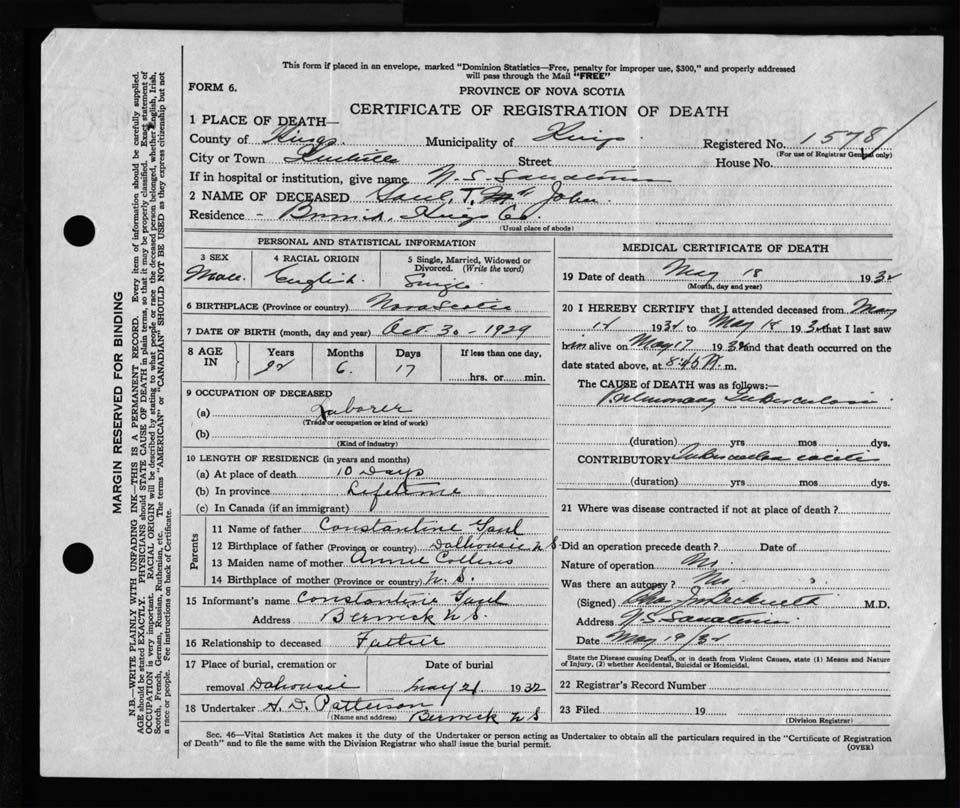 This form if placed in an envelope, marked "Dominion Statistics—Free, penalty for improper use, $300," and properly addressed
will pass through the Mail "FREE"
FORM 6.
PROVINCE OF NOVA SCOTIA
CERTIFICATE OF REGISTRATION OF DEATH
1 PLACE OF DEATH—
County of Kings Municipality of Kings Registered No. 1578
(For use of Registrar General only)
City or Town Kentville Street House No.
If in hospital or institution, give name N.S. Sanatorium
2 NAME OF DECEASED Gaul, T. John
Residence - Kings Co.
(Usual place of abode)
PERSONAL AND STATISTICAL INFORMATION
3 SEX 4 RACIAL ORIGIN 5 Single, Married, Widowed or
Divorced. (Write the word)
Male. English. Single
6 BIRTHPLACE (Province or country) Nova Scotia
7 DATE OF BIRTH (month, day and year) Oct. 30 - 1929
8 AGE IN Years Months Days If less than one day,
6. 17 hrs. or min.
9 OCCUPATION OF DECEASED
(a) Laborer
(Trade or occupation or kind of work)
(b)
(Kind of industry)
10 LENGTH OF RESIDENCE (in years and months)
(a) At place of death 10 Days
(b) In province Lifetime
(c) In Canada (if an immigrant)
Parents
11 Name of father Constantine Gaul
12 Birthplace of father (Province or country) Dalhousie N S
13 Maiden name of mother Annie Collins
14 Birthplace of mother (Province or country) N. S.
15 Informant's name Constantine Gaul
Address Berwick N S.
16 Relationship to deceased Father
17 Place of burial, cremation or Date of burial
removal Dahousie May 21 1932
18 Undertaker H. D. Patterson
(Name and address) Berwick N S
MEDICAL CERTIFICATE OF DEATH
19 Date of death May 18 1932
(Month, day and year)
20 I HEREBY CERTIFY that I attended deceased from May
1932 to May 18 1932 that I last saw
him alive on May 17 1932 and that death occurred on the
date stated above, at 8:45 m.
The CAUSE of DEATH was as follows:—
Pulmonary Tuberculosis
(duration) yrs mos dys.
CONTRIBUTORY Tuberculous
(duration) yrs. mos. dys.
21 Where was disease contracted if not at place of death?
Did an operation precede death? Date of
Nature of operation No.
Was there an autopsy? No.
(Signed) M.D.
Address N.S. Sanatorium
Date May 19/32
State the Disease causing Death, or in death from Violent Causes, state (1) Means and Nature
of Injury, (2) whether Accidental, Suicidal or Homicidal.
22 Registrar's Record Number
23 Filed 19
(Division Registrar)
Sec. 46—Vital Statistics Act makes it the duty of the Undertaker or person acting as Undertaker to obtain all the particulars required in the "Certificate of Registration
of Death" and to file the same with the Division Registrar who shall issue the burial permit.
(OVER)
MARGIN RESERVED FOR BINDING
N.B.—WRITE PLAINLY WITH UNFADING INK—THIS IS A PERMANENT RECORD. Every item of information should be carefully supplied.
AGE should be stated EXACTLY. PHYSICIANS should STATE CAUSE OF DEATH in plain terms, so that it may be properly classified. Exact statement of
OCCUPATION is very important. RACIAL ORIGIN will be described by stating to what people or race the deceased person belonged, whether English, Irish,
Scotch, French, German, Russian, Ruthenian, etc. The terms "AMERICAN" or "CANADIAN" SHOULD NOT BE USED as they express citizenship but not
a race or people. See instructions on back of Certificate.